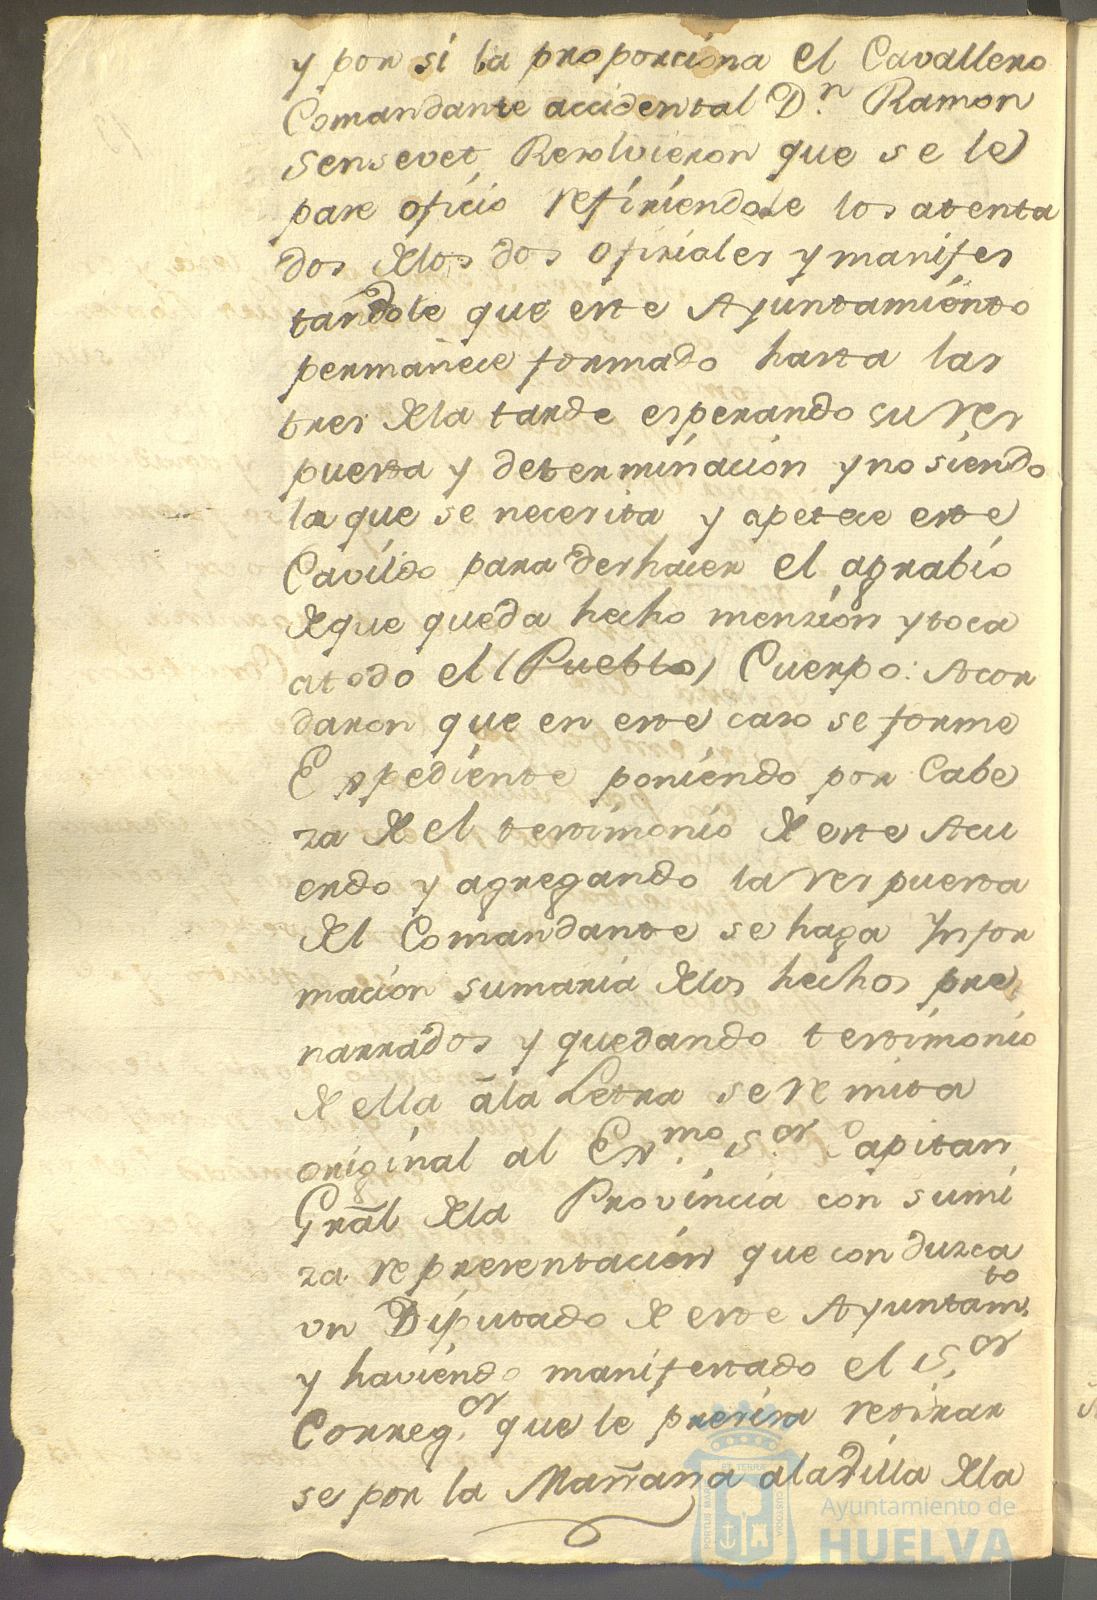 y por si la proporciona el Cavallero
Comandante accidental D.n Ramon
Sensevet, Resolvieron que se le
pase oficio refiriendole los atenta
dos delos dos oficiales y manifes
tandole que este Ayuntamiento
permanece formado hasta las
tres dela tarde esperando su res
puesta y determinacion y no siendo
la que se necesita y apetece este
Cavildo para deshacer el agrabio
deque queda hecho menzion y toca
a todo el (Pueblo) Cuerpo: Acor
daron que en este caso se forme
Expediente poniendo por Cabe
za de el testimonio de este Acu
erdo y agregando la respuesta
del Comandante se haga Infor
macion sumaria delos hechos pre
narrados y quedando testimonio
de ella àla Letra se remita
original al Ex.mo S.or Capitan
Gral dela Provincia con sumi
za representacion que conduzca
un Diputado de este Ayuntam.to
y haviendo manifestado el S.or
Correg.or que le precisa retirar
se por la Mañana a la Villa dela
PORTUS MARIS ET TERRAE CUSTODIA
Ayuntamiento de
HUELVA